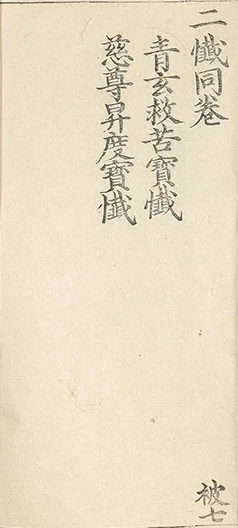 二懺同卷
青玄救苦寶懺
慈尊昇度寶懺
被七